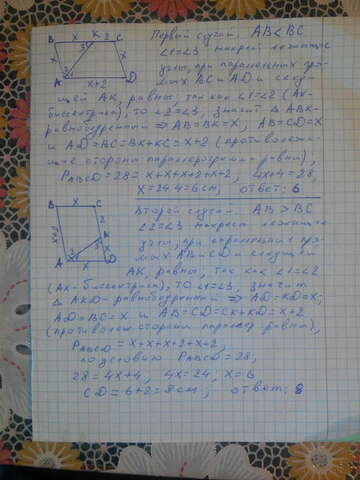 B x K 2 C
Первый случай. AB < BC
∠1=∠3 накрест лежащие
углы, при параллельных пря-
x 3 x
мых BC и AD и секу-
A 1 2 D
x+2
щей AK, равны, так как ∠1=∠2 (AK-
биссектриса), то ∠2=∠3, значит △ ABK-
равнобедренный ⇒ AB=BK=X, AB=CD=X
и AD=BC=BK+KC=X+2 (противолежа-
щие стороны параллелограмм-равны),
PABCD=28=X+X+X+2+X+2, 4X+4=28,
X=24:4=6см, ответ: 6
B x C
Второй случай. AB > BC
∠2=∠3 накрест лежащие
x+2 2 K
углы, при параллельных пря-
3 x
мых AB и CD и секущей
A 1 D
x
AK, равны, так как ∠1=∠2
(AK-биссектриса), то ∠1=∠3, значит
△ AKD-равнобедренный ⇒ AD=KD=X;
AD=BC=X и AB=CD=CK+KD=X+2
(противолеж. стороны паралер равны),
PABCD=X+X+X+2+X+2,
по условию PABCD=28,
28=4X+4, 4X=24, X=6
CD=6+2=8см, ответ: 8